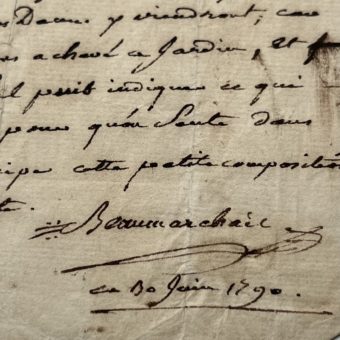 Dames y viendront; car
achevé ce Jardin, et
peut indiquer ce qui
pour qu'on Sente dans
cette petite composition
Beaumarchais
ce 30 Juin 1790.